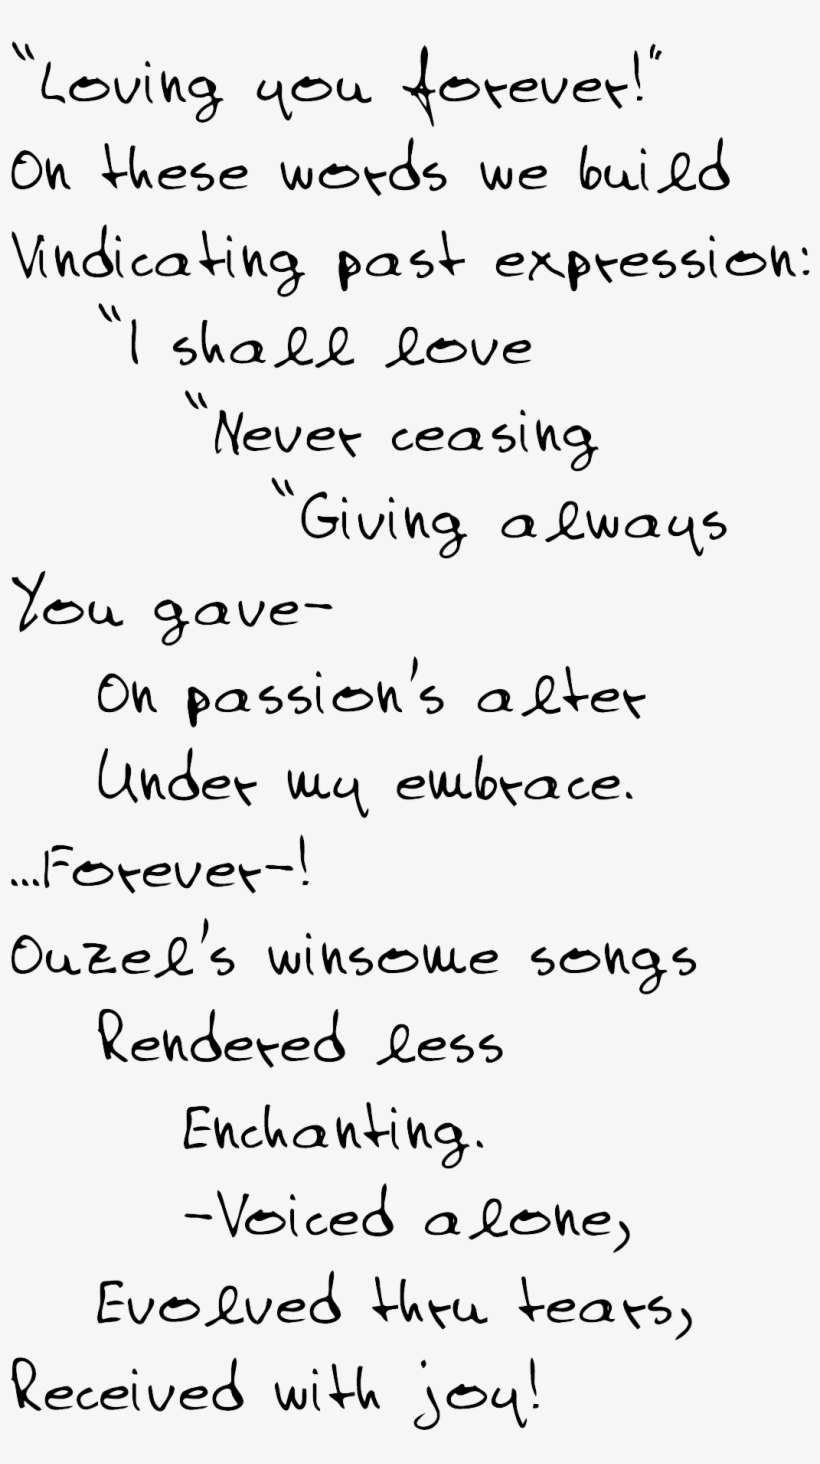 “Loving you forever!”
On these words we build
Vindicating past expression:
“I shall love
“Never ceasing
“Giving always
You gave-
On passion's alter
Under my embrace.
...Forever-!
Ouzel's winsome songs
Rendered less
Enchanting.
-Voiced alone,
Evolved thru tears,
Received with joy!